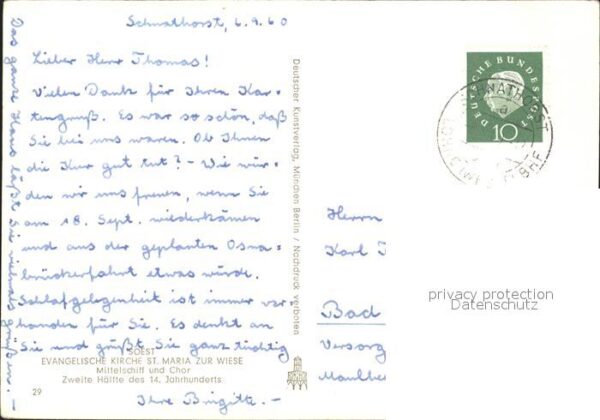 Schnathorst, 6.9.60
Lieber Herr Thomas!
Vielen Dank für Ihren Kar-
tengruß. Es war so schön, daß
Sie bei uns waren. Ob Ihnen
die Kur gut tut? - Wie wür-
den wir uns freuen, wenn Sie
am 18. Sept. wiederkämen
und aus der geplanten Osna-
brückerfahrt etwas würde.
Schlafgelegenheit ist immer vor-
handen für Sie. Es denkt an
Sie und grüßt Sie ganz tüchtig
Ihre Brigitte. -
Das ganze Haus läßt Sie vielmals grüßen. -
SOEST
EVANGELISCHE KIRCHE ST. MARIA ZUR WIESE
Mittelschiff und Chor
Zweite Hälfte des 14. Jahrhunderts
29
Deutscher Kunstverlag, München Berlin / Nachdruck verboten
DEUTSCHE BUNDESPOST
10
SCHNATHORST
a
Herrn
Karl T
Bad
Versorg
privacy protection
Datenschutz